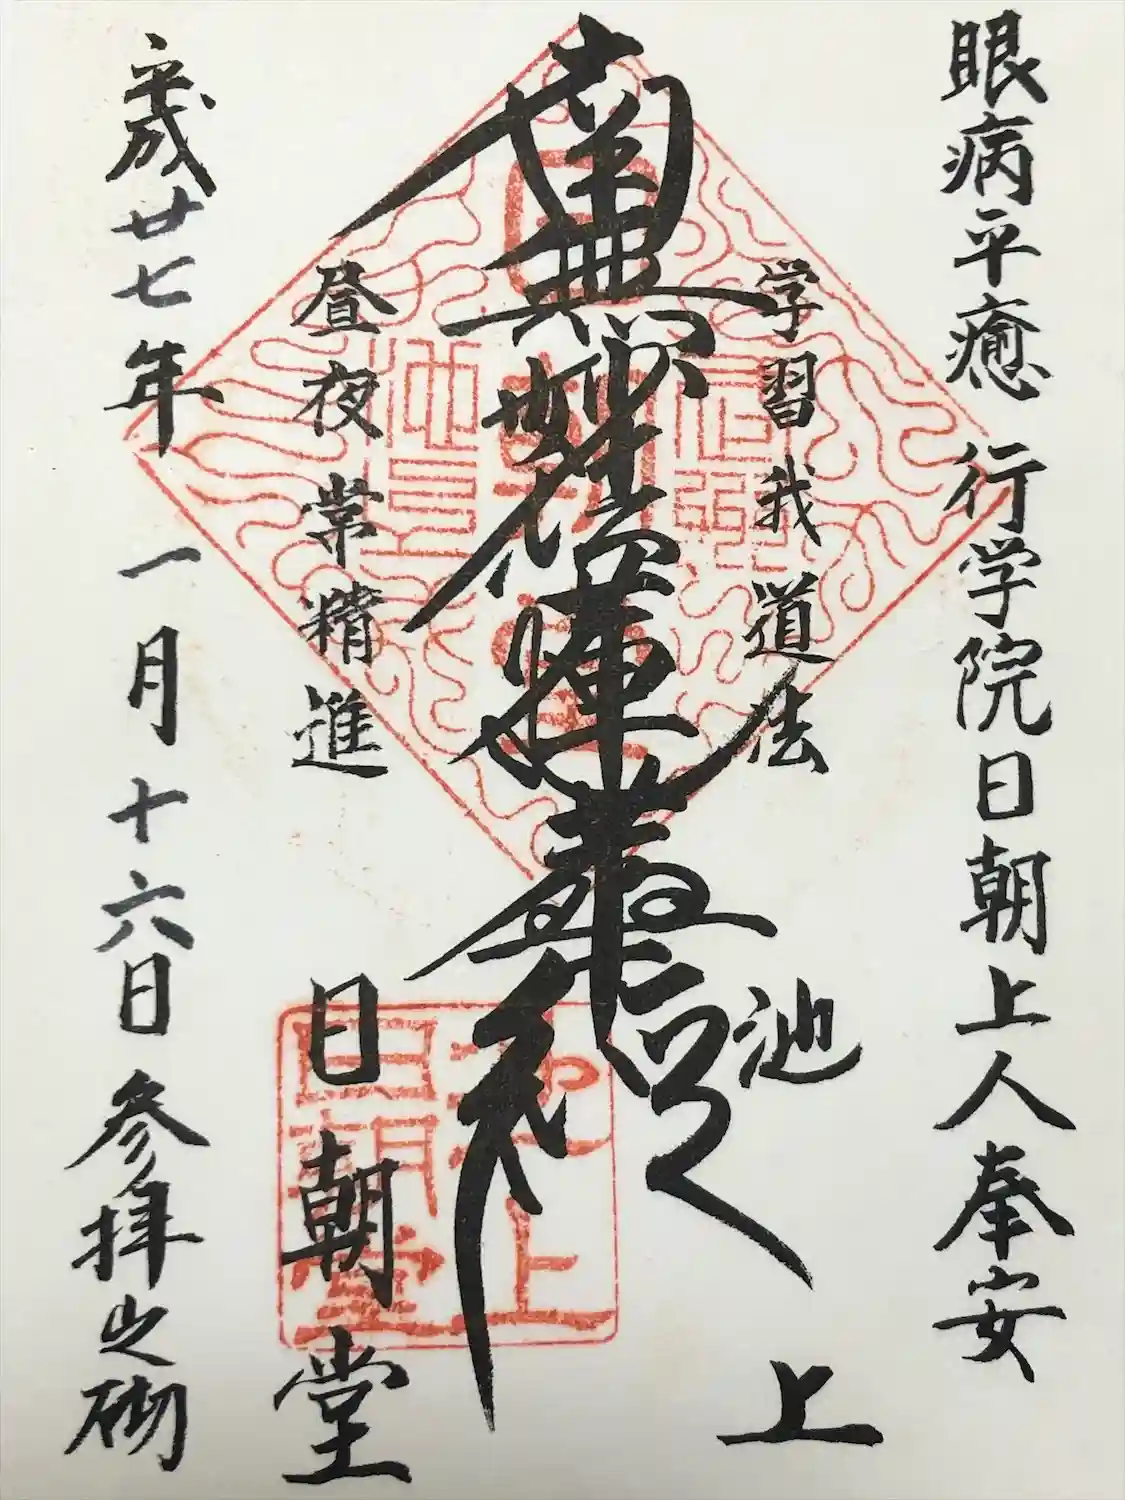 眼病平癒 行学院日朝上人奉安
学習我道法 池上
南無妙法蓮華経
昼夜常精進 日朝堂
平成廿七年一月十六日 参拝之砌
池上
日朝堂